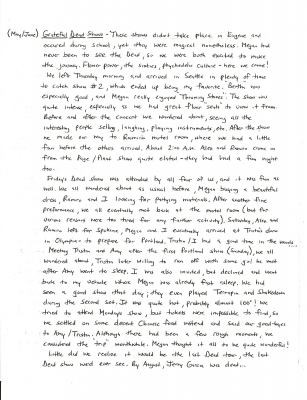 (May/June) Grateful Dead Shows - These shows didn't take place in Eugene and
occured during school, yet they were magical nonetheless. Megan had
never been to see the Dead, so we were both excited to make
the journey. Flower power, the sixties, psychedelic culture - here we come!
We left Thursday morning and arrived in Seattle in plenty of time
to catch show #2, which ended up being my favorite. "Bertha" was
especially good, and Megan really enjoyed " Stones". The show was
quite intense, especially as we had great "floor seats" to view it from.
Before and after the concert we wandered about, seeing all the
interesting people selling, laughing, playing instruments, etc. After the show
we made our way to Ramin's motel room where we had a little
fun before the others arrived. About 2:00 A.M. Alex and Ramin came in
from the Page/Plant show quite elated - they had had a fun night
too.
Friday's Dead show was attended by all four of us, and it was fun as
well. We all wandered about as usual before, Megan buying a beautiful
dress, Ramin and I looking for partying materials. After another fine
performance, we all eventually met back at the motel room (but the
various reasons were too tired for any further activity). Saturday, Alex and
Ramin left for Spokane, Megan and I eventually arrived at Trutin's down
in Olympia to prepare for Portland, Trutin/I had a good time in the woods.
Meeting Trutin and Amy after the first Portland show (Sunday), we all
wandered about, Trutin later willing to run off with some girl he met
after Amy went to sleep. I was also invited, but declined and went
back to my vehicle where Megan was already fast asleep. We had
seen a good show that day; they even played Terrapin and Shakedown
during the second set. It was quite hot, probably almost 100°! We
tried to attend Monday's show, but tickets were impossible to find, so
we settled on some decent Chinese food instead and said our good-byes
to Amy/Trutin. Although there had been a few rough moments, we
considered the "trip" worthwhile. Megan thought it all to be quite wonderful!
Little did we realize it would be the last Dead tour, the last
Dead show we'd ever see. By August, Jerry Garcia was dead...